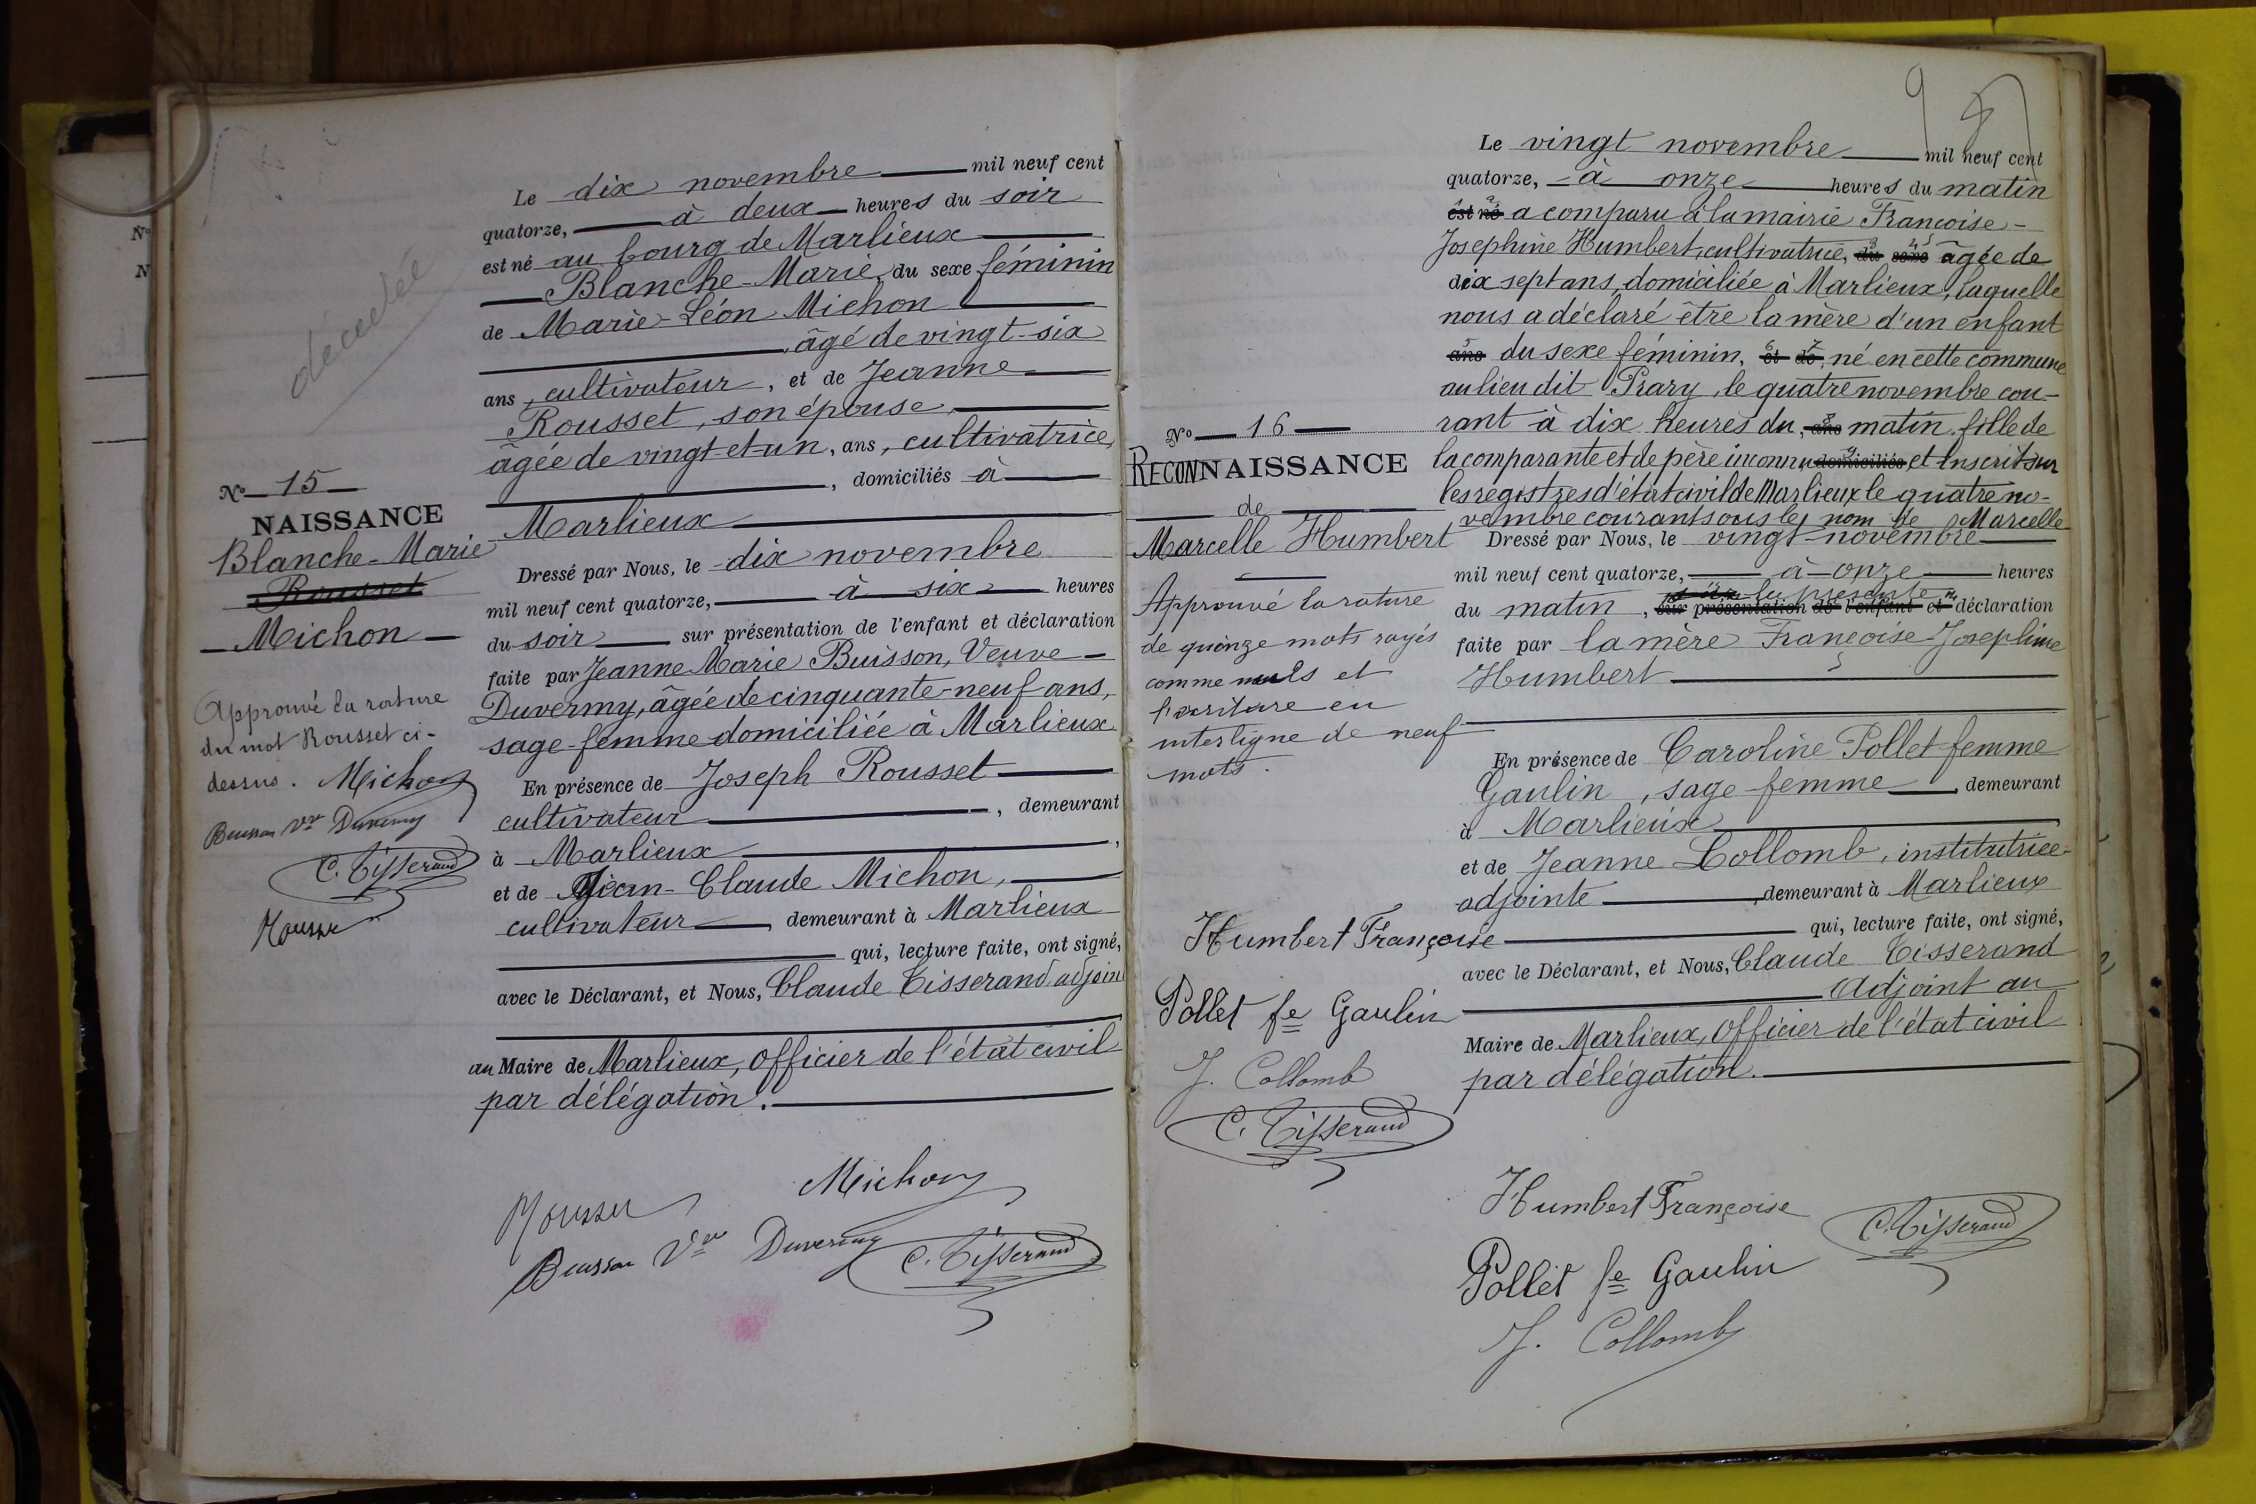 décédée
N° 15
NAISSANCE
Blanche-Marie
Rousset
Michon
Approuvé la rature
du mot Rousset ci-
dessus. Michon
Buisson Vve Duvermy
C. Tisserand
Rousset
Le dix novembre mil neuf cent
quatorze, à deux heures du soir
est né au bourg de Marlieux
Blanche-Marie, du sexe féminin
de Marie-Léon Michon
, âgé de vingt-six
ans, cultivateur, et de Jeanne
Rousset, son épouse,
âgée de vingt-et-un, ans, cultivatrice,
, domiciliés à
Marlieux
Dressé par Nous, le dix novembre
mil neuf cent quatorze, à six heures
du soir sur présentation de l'enfant et déclaration
faite par Jeanne Marie Buisson, Veuve
Duvermy, âgée de cinquante-neuf ans,
sage-femme domiciliée à Marlieux
En présence de Joseph Rousset
cultivateur , demeurant
à Marlieux ,
et de Jean-Claude Michon,
cultivateur , demeurant à Marlieux
qui, lecture faite, ont signé,
avec le Déclarant, et Nous, Claude Tisserand adjoint
au Maire de Marlieux, Officier de l'état civil
par délégation.
Rousset
Michon
Buisson Vve Duvermy
C. Tisserand
N° 16
RECONNAISSANCE
de
Marcelle Humbert
Approuvé la rature
de quinze mots rayés
comme nuls et
l'écriture en
interligne de neuf
mots.
Humbert Françoise
Pollet fe Gaulin
J. Collomb
C. Tisserand
9
Le vingt novembre mil neuf cent
quatorze, à onze heures du matin
est né a comparu à la mairie Francoise-
Josephine Humbert, cultivatrice, du sexe âgée de
dix sept ans, domiciliée à Marlieux, laquelle
nous a déclaré être la mère d'un enfant
ans du sexe féminin, et de né en cette commune
au lieu dit Prary, le quatre novembre cou-
rant à dix heures du, ans matin fille de
la comparante et de père inconnu domiciliés et inscrit sur
les registres d'état civil de Marlieux le quatre no-
vembre courant sous le nom de Marcelle
Dressé par Nous, le vingt novembre
mil neuf cent quatorze, à onze heures
du matin, sur présentation de l'enfant et déclaration
faite par la mère Françoise Josephine
Humbert
En présence de Caroline Pollet femme
Gaulin, sage-femme , demeurant
à Marlieux
et de Jeanne Collomb, institutrice-
adjointe , demeurant à Marlieux
qui, lecture faite, ont signé,
avec le Déclarant, et Nous, Claude Tisserand
Adjoint au
Maire de Marlieux, Officier de l'état civil
par délégation.
Humbert Françoise
C. Tisserand
Pollet fe Gaulin
J. Collomb